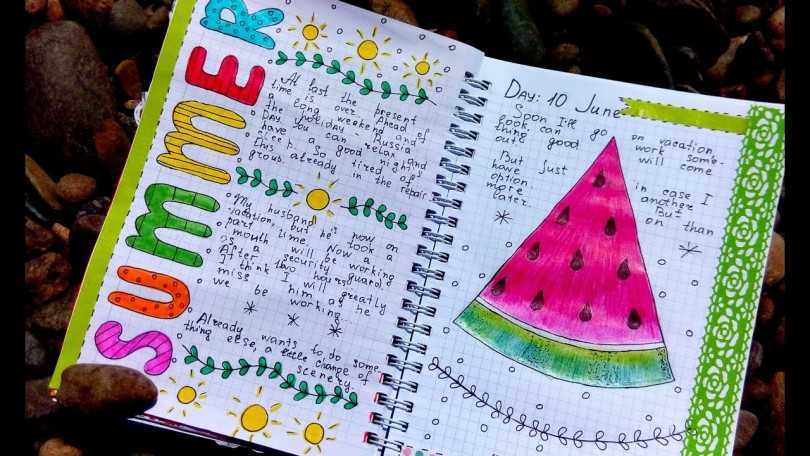 SUMMER
At last the present
time is over. Ahead of
a long weekend and
the holiday - Russia
Day. You can relax and
have a good night's
sleep. So tired of
this already in the repair
group.
My husband is now on
vacation, but he took a
part time. Now a
month will be working
as a security guard.
After two hours
I think I will greatly
miss him as he
we be working.
Already wants to do some-
thing else, a little change of
scenery.
DAY: 10 June
Soon I'll go on vacation
look, can work some-
thing good will come
out.
But just in case I
have another
option. But
more on than
later.